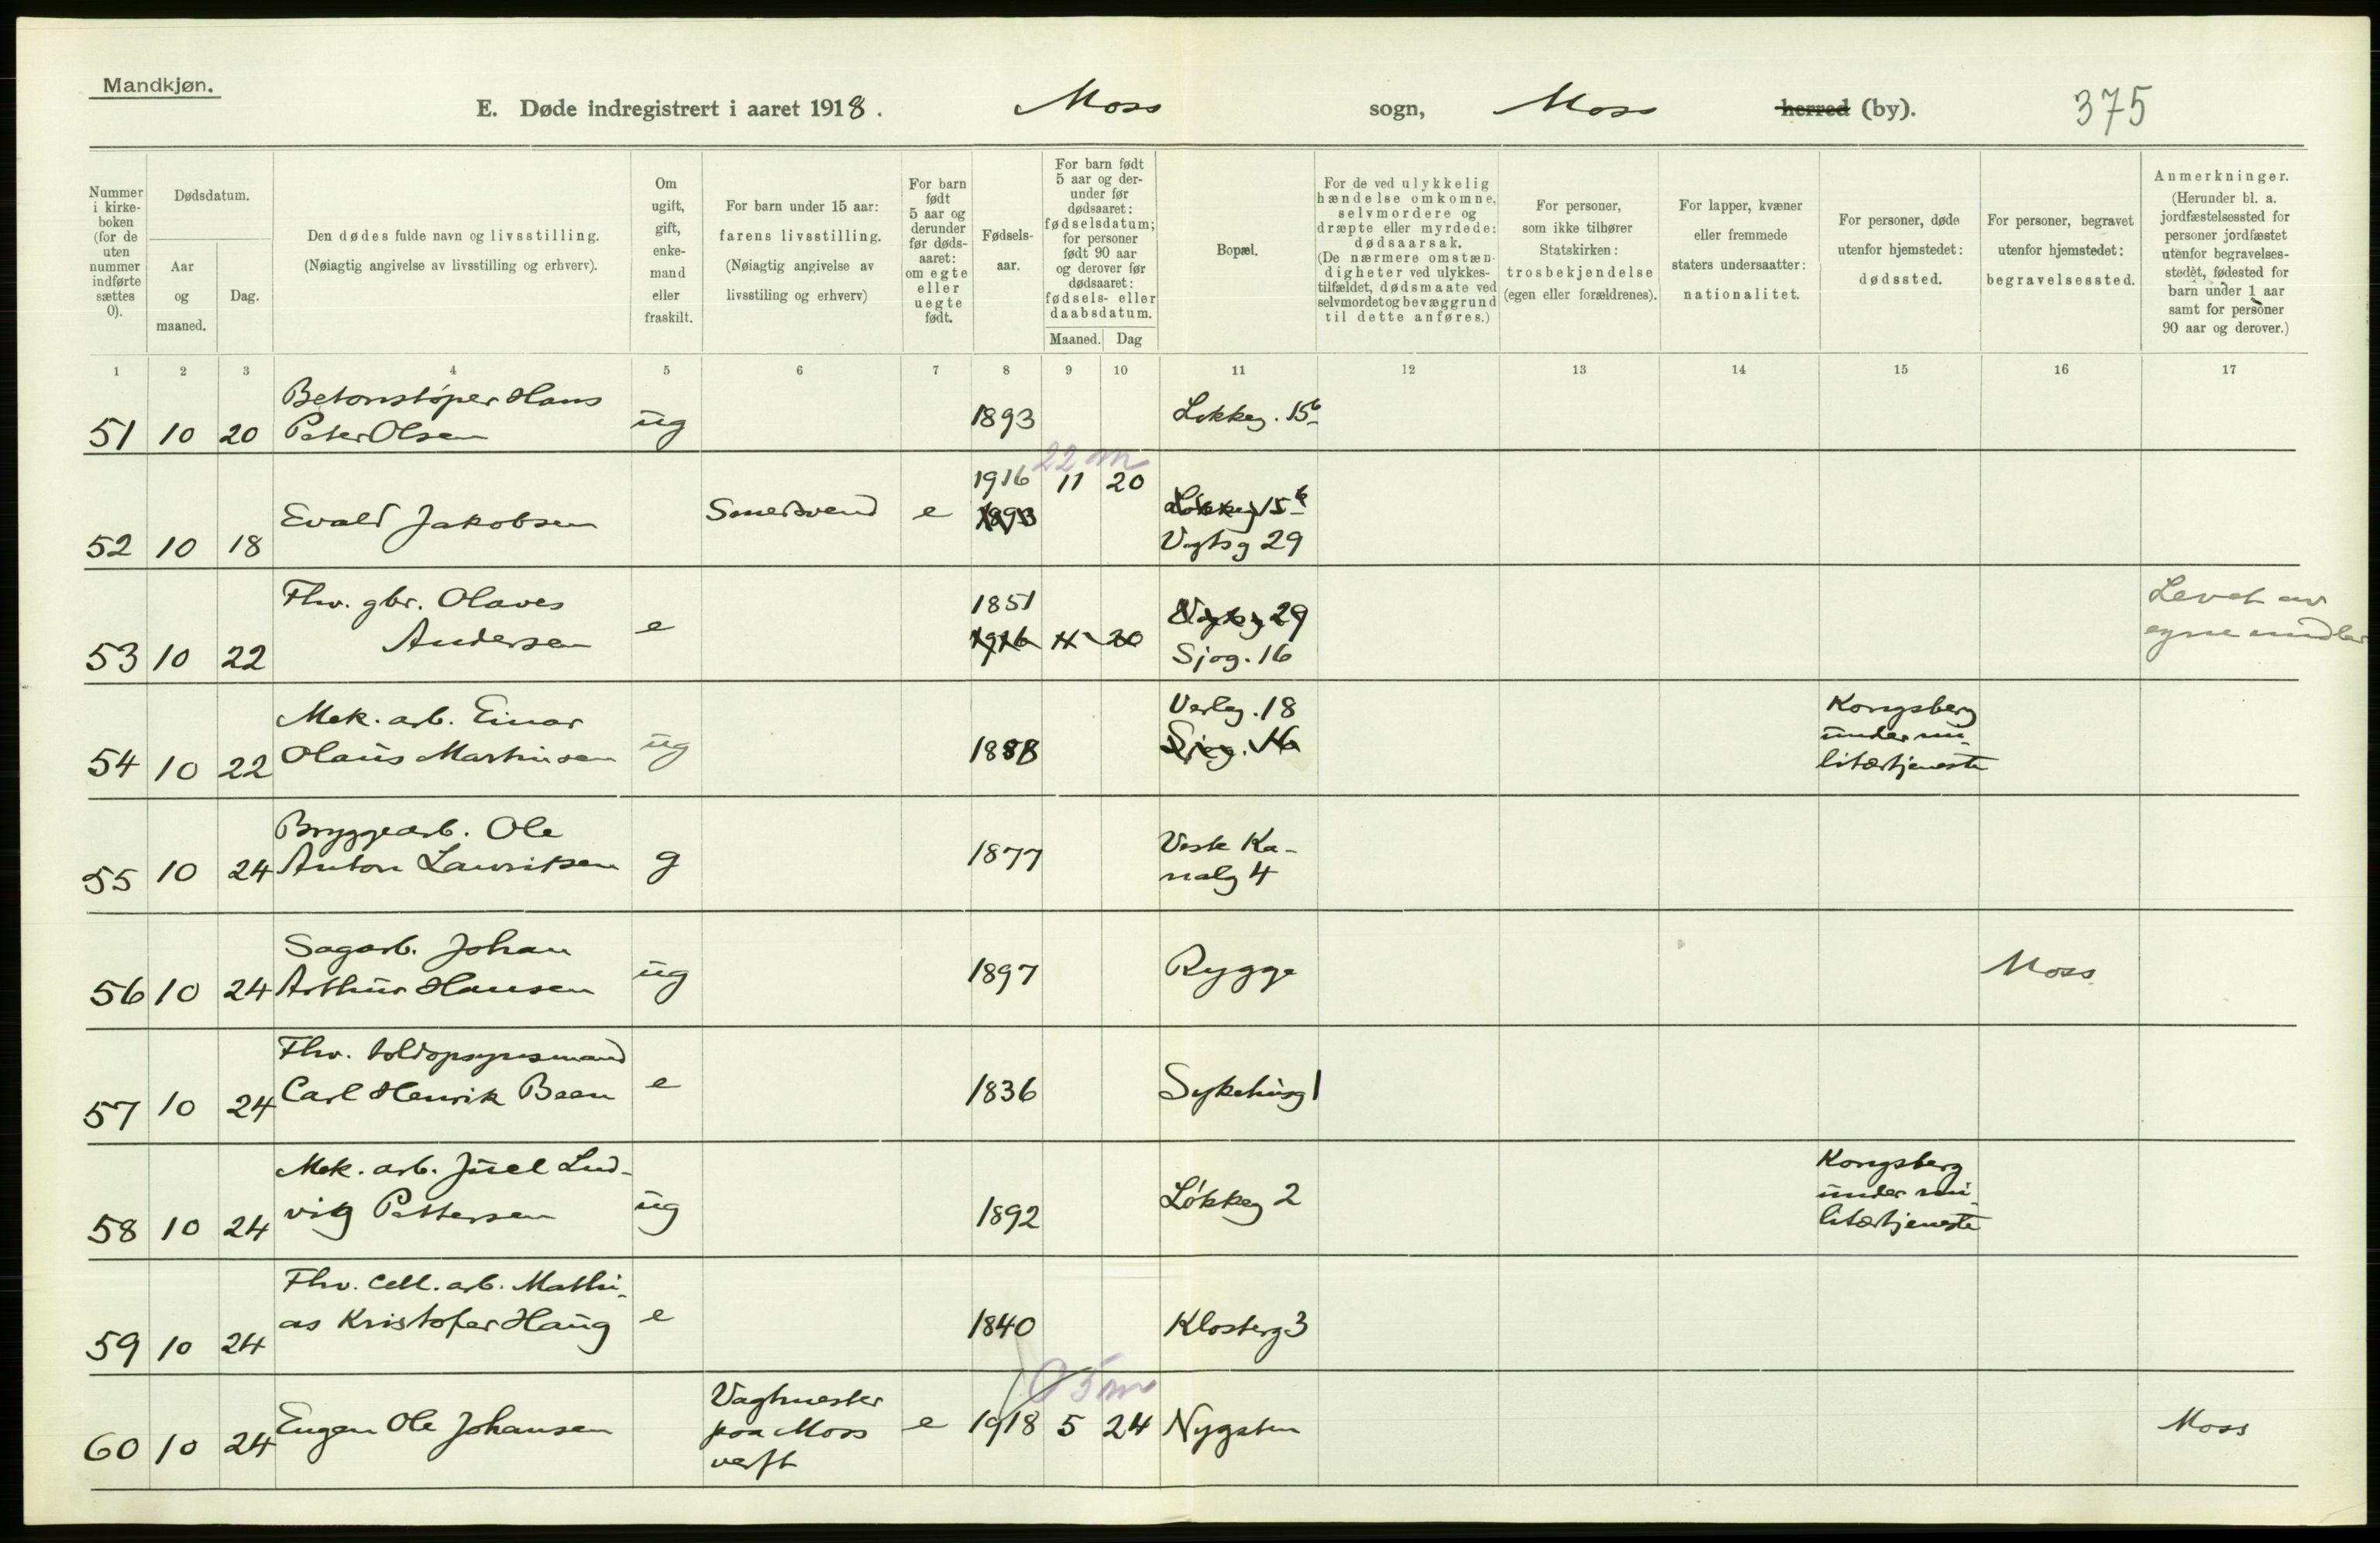 Mandkjøn.
E. Døde indregistrert i aaret 1918. Moss sogn, Moss herred (by). 375
Nummer i kirke-boken (for de uten nummer indførte sættes 0).
Dødsdatum.
Aar og maaned.
Dag.
Den dødes fulde navn og livsstilling.
(Nøiagtig angivelse av livsstilling og erhverv).
Om ugift, gift, enke-mand eller fraskilt.
For barn under 15 aar: farens livsstilling.
(Nøiagtig angivelse av livsstiling og erhverv)
For barn født 5 aar og derunder før døds-aaret: om egte eller uegte født.
Fødsels-aar.
For barn født 5 aar og der-under før dødsaaret: fødselsdatum; for personer født 90 aar og derover før dødsaaret: fødsels- eller daabsdatum.
Maaned. Dag
Bopæl.
For de ved ulykkelig hændelse omkomne, selvmordere og dræpte eller myrdede: dødsaarsak.
(De nærmere omstæn-digheter ved ulykkes-tilfældet, dødsmaate ved selvmordet og bevæggrund til dette anføres.)
For personer, som ikke tilhører Statskirken: trosbekjendelse (egen eller forældrenes).
For lapper, kvæner eller fremmede staters undersaatter: nationalitet.
For personer, døde utenfor hjemstedet: dødssted.
For personer, begravet utenfor hjemstedet: begravelsessted.
Anmerkninger.
(Herunder bl. a. jordfæstelsessted for personer jordfæstet utenfor begravelses-stedet, fødested for barn under 1 aar samt for personer 90 aar og derover.)
1 2 3 4 5 6 7 8 9 10 11 12 13 14 15 16 17
51 10 20 Betonstøper Hans
Peter Olsen ug 1893 Løkkeg. 15b
22 m
52 10 18 Evald Jakobsen Smedsvend e 1916 11 20
1893 Løkkeg 15b
Vogtsg 29
53 10 22 Fhv. gbr. Olaves
Andersen e 1851
1916 11 20 Vogtsg 29
Sjøg. 16 Levet av
egne midler
54 10 22 Mek. arb. Einar
Olaus Martinsen ug 1888 Verleg. 18
Sjøg. 16 Kongsberg
under mi-
litærtjeneste
55 10 24 Bryggearb. Ole
Anton Lauritsen g 1877 Vestre Ka-
nalg 4
56 10 24 Sagarb. Johan
Arthur Hansen ug 1897 Rygge Moss
57 10 24 Fhv. toldopsynsmand
Carl Henrik Been e 1836 Sykehusg 1
58 10 24 Mek. arb. Juel Lud-
vig Pettersen ug 1892 Løkkeg 2 Kongsberg
under mi-
litærtjeneste
59 10 24 Fhv. cell. arb. Mathi-
as Kristofer Haug e 1840 Klosterg 3
0 5 m
60 10 24 Eugen Ole Johansen Vagtmester
paa Moss
verft e 1918 5 24 Nygaten Moss